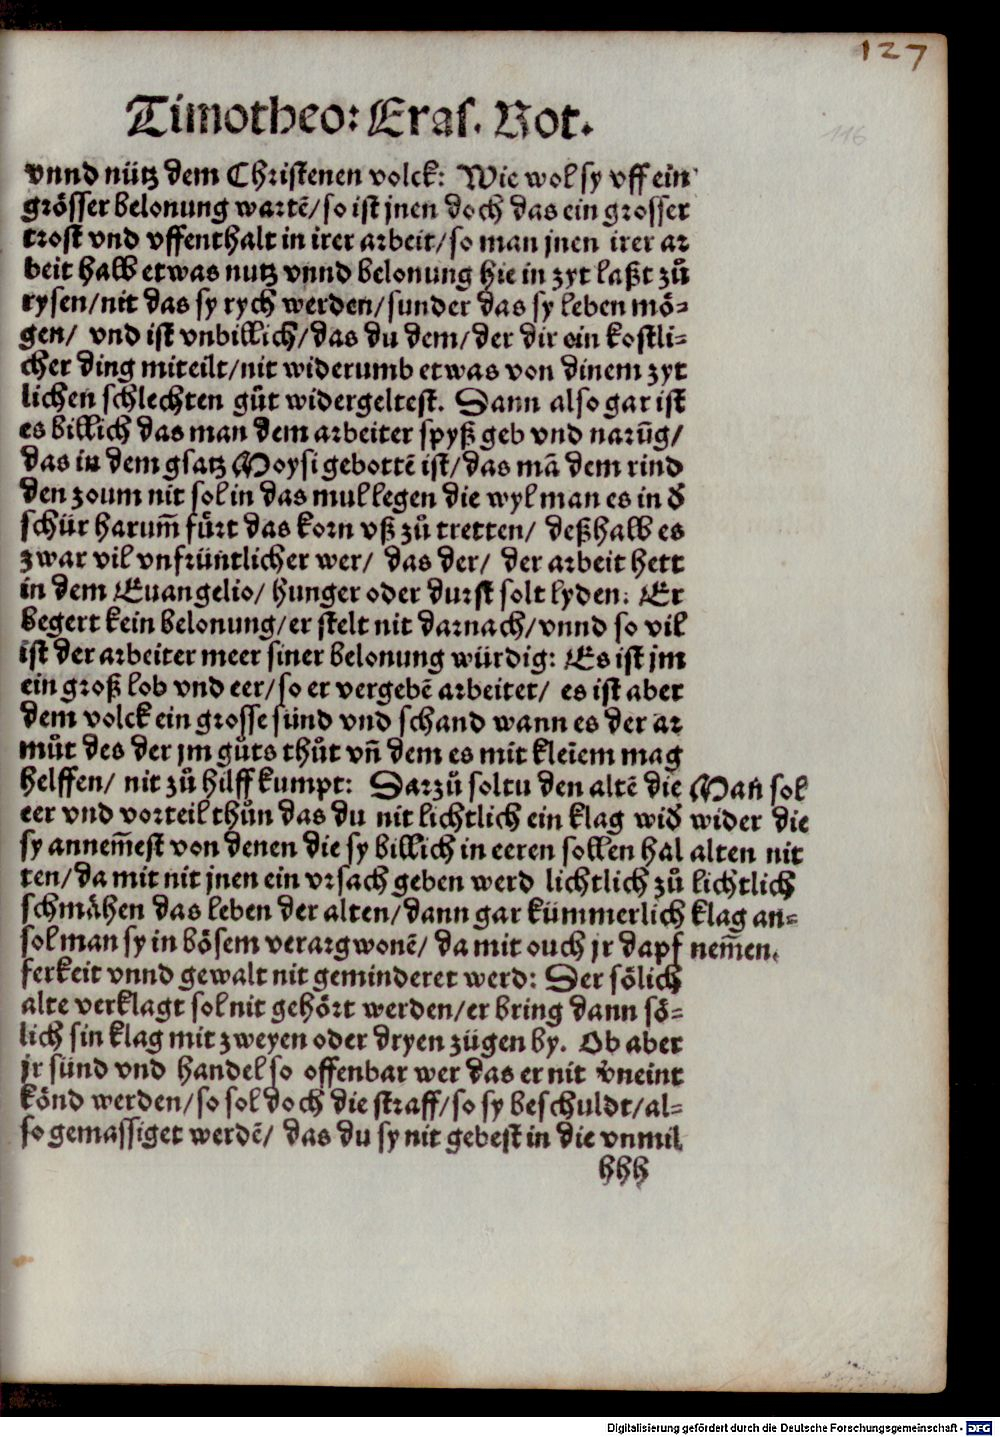 127
116
Timotheo: Eras. Rot.
vnnd nütz dem Christenen volck: Wie wol sy vff ein
grösser belonung wartē/ so ist jnen doch das ein grosser
trost vnd vffenthalt in irer arbeit/ so man jnen irer ar
beit halb etwas nutz vnnd belonung hie in zyt laßt zů
rysen/ nit das sy rych werden/ sunder das sy leben mö-
gen/ vnd ist vnbillich/ das du dem/ der dir ein kostli-
cher ding miteilt/ nit widerumb etwas von dinem zyt
lichen schlechten gůt widergeltest. Dann also gar ist
es billich das man dem arbeiter spyß geb vnd narūg/
das in dem gsatz Moysi gebottē ist/ das mā dem rind
den zoum nit sol in das mul legen die wyl man es in d̕
schür harum̄ fůrt das korn vß zů tretten/ deßhalb es
zwar vil vnfrüntlicher wer/ das der/ der arbeit hett
in dem Euangelio/ hunger oder durst solt lyden: Er
begert kein belonung/ er stelt nit darnach/ vnnd so vil
ist der arbeiter meer siner belonung würdig: Es ist jm
ein groß lob vnd eer/ so er vergebē arbeitet/ es ist aber
dem volck ein grosse sünd vnd schand wann es der ar
můt des der jm gůts thůt vn̄ dem es mit kleīem mag
helffen/ nit zů hilff kumpt: Darzů soltu den altē die
eer vnd vorteil thůn das du nit lichtlich ein klag wid̕
sy annem̄est von denen die sy billich in eeren sollen hal
ten/ da mit nit jnen ein vrsach geben werd lichtlich zů
schmähen das leben der alten/ dann gar kümmerlich
sol man sy in bösem verargwonē/ da mit ouch jr dapf
ferkeit vnnd gewalt nit geminderet werd: Der sölich
alte verklagt sol nit gehört werden/ er bring dann sö-
lich sin klag mit zweyen oder dryen zügen by. Ob aber
jr sünd vnd handel so offenbar wer das er nit vneint
könd werden/ so sol doch die straff/ so sy beschuldt/ al-
so gemassiget werdē/ das du sy nit gebest in die vnmil
hhh
Man sol
wider die
alten nit
lichtlich
klag an-
nem̄en.
Digitalisierung gefördert durch die Deutsche Forschungsgemeinschaft - DFG